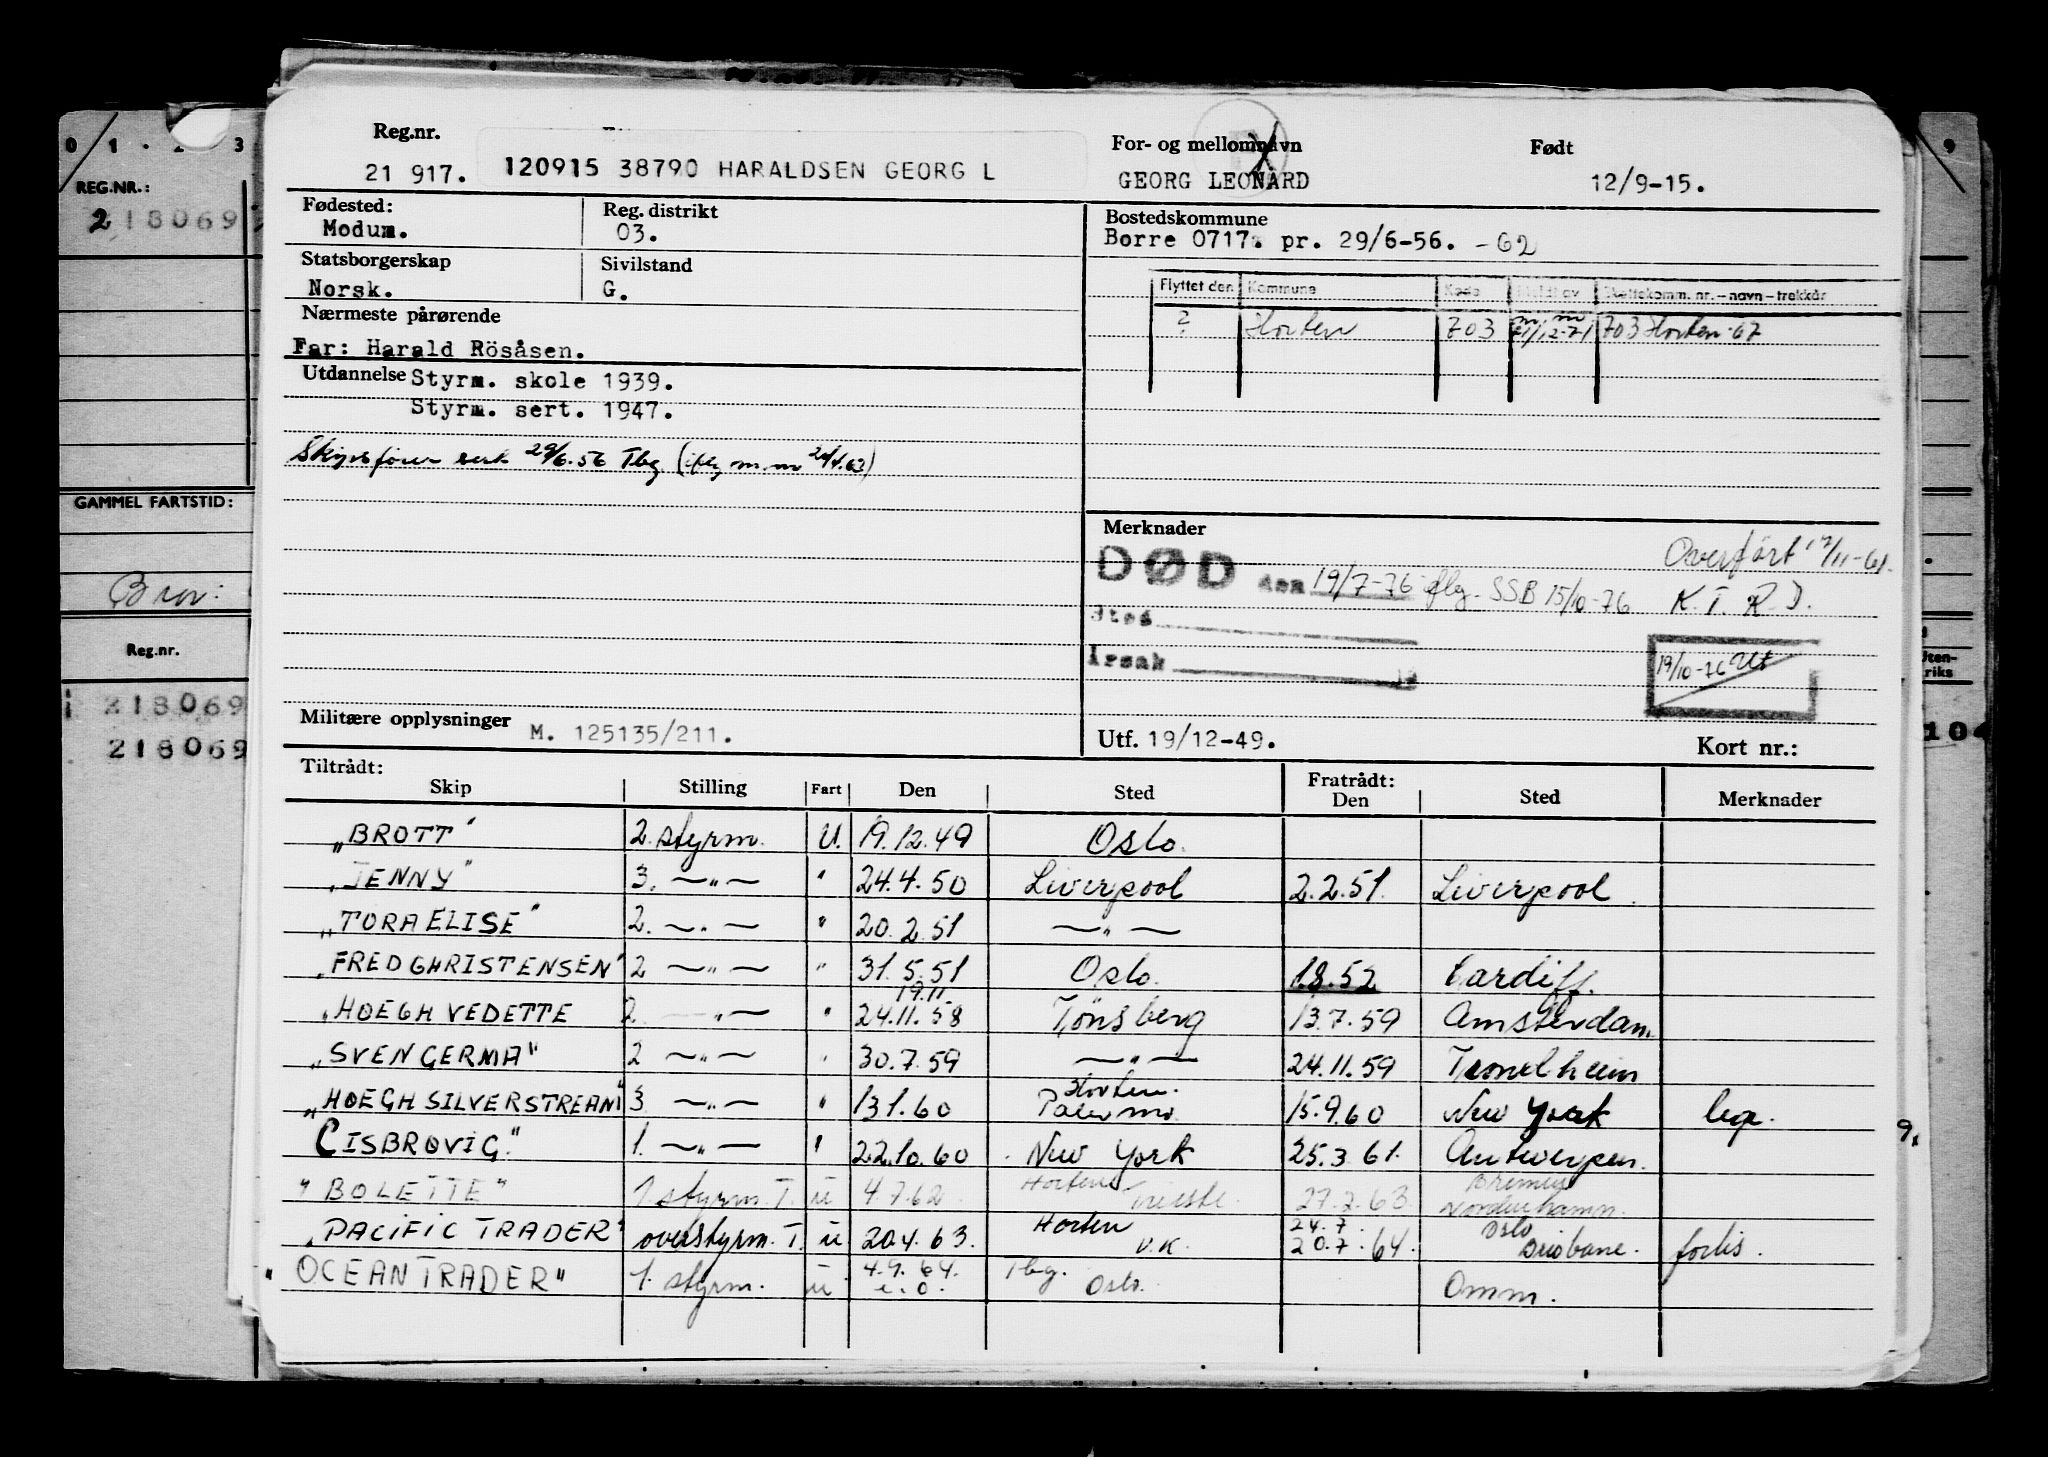 Reg.nr.
21 917. 120915 38790 HARALDSEN GEORG L
For- og mellomnavn
GEORG LEONARD
Født
12/9-15.
Fødested:
Modum.
Reg. distrikt
03.
Bostedskommune
Borre 0717. pr. 29/6-56. -62
Statsborgerskap
Norsk.
Sivilstand
G.
Flyttet den Kommune Kode Meldt av Skattekomm. nr. - navn - trekkår
? Horten 703 mm 21/12-71 703 Horten-67
Nærmeste pårørende
Far: Harald Rösåsen.
Utdannelse Styrm. skole 1939.
Styrm. sert. 1947.
Skipsfører sert 29/6.56 Tbg. (iflg m.m 24/4.63)
Merknader
DØD den 19/7-76 iflg. SSB 15/10-76
Sted
Årsak
Overført 17/11-61.
K. T. R. D.
19/10-76 Ut
Militære opplysninger M. 125135/211.
Utf. 19/12-49.
Kort nr.:
Tiltrådt:
Skip Stilling Fart Den Sted Fratrådt: Den Sted Merknader
„BROTT" 2. styrm. U. 19.12.49 Oslo.
„JENNY" 3. —„— " 24.4.50 Liverpool 2.2.51. Liverpool.
„TORA ELISE" 2. —„— " 20.2.51 —„—
„FRED CHRISTENSEN" 2 —„— " 31.5.51 Oslo. 1.8.52 Cardiff.
„HOEGH VEDETTE 2. —„— " 19.11 24.11.58 Tönsberg 13.7.59 Amsterdam.
„SVEN GERMA" 2 —„— " 30.7.59 —„— 24.11.59 Trondheim
„HOEGH SILVERSTREAM" 3 —„— " 13.1.60 Horten. Palermo. 15.9.60 New York leg.
CISBROVIG." 1. —„— " 22.10.60 New York 25.3.61. Antwerpen.
"BOLETTE" 1. styrm. T. u 4.7.62. Horten Trieste. 27.2.63. Bremen Nordenhamn.
„PACIFIC TRADER" overstyrm. T. u 20.4.63. Horten V.K. 24.7. 20.7.64. Oslo Brisbane. forlis.
"OCEAN TRADER" 1. styrm. u 4.9.64. e.o. Tbg. Oslo. Omm.
0 1 2 3
REG.NR.:
218069
GAMMEL FARTSTID:
Brov:
Reg.nr.
218069
218069
9
Uten-
riks
104
9.